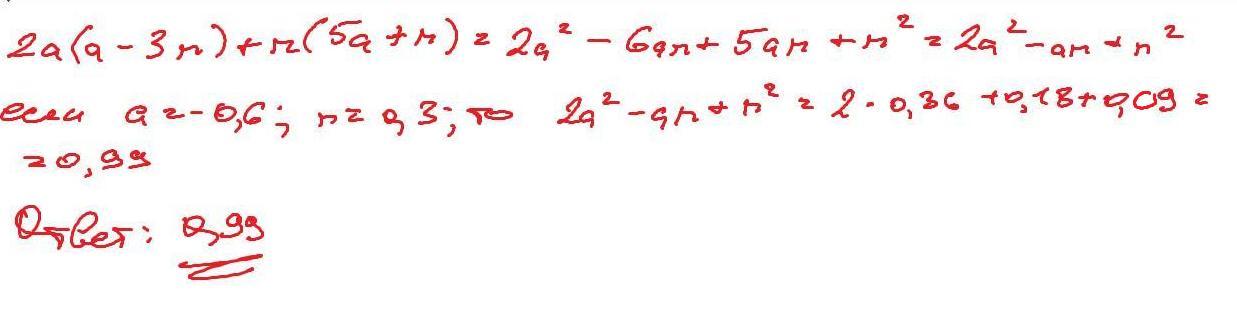 2a(a - 3n) + n(5a + n) = 2a² - 6an + 5an + n² = 2a² - an + n²
если a = -0,6; n = 0,3; то 2a² - an + n² = 2 · 0,36 + 0,18 + 0,09 =
= 0,99
Ответ: 0,99